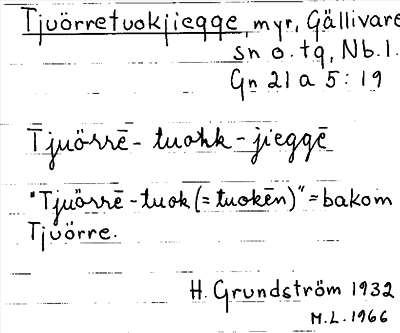 Tjuörretuokjiegge, myr, Gällivare
sn o. tg, Nb. l.
Gn 21 a 5:19
Tjuörrē - tuohk - jieggē
"Tjuörrē - tuok (= tuokēn)" = bakom
Tjuörre.
H. Grundström 1932
M.L. 1966